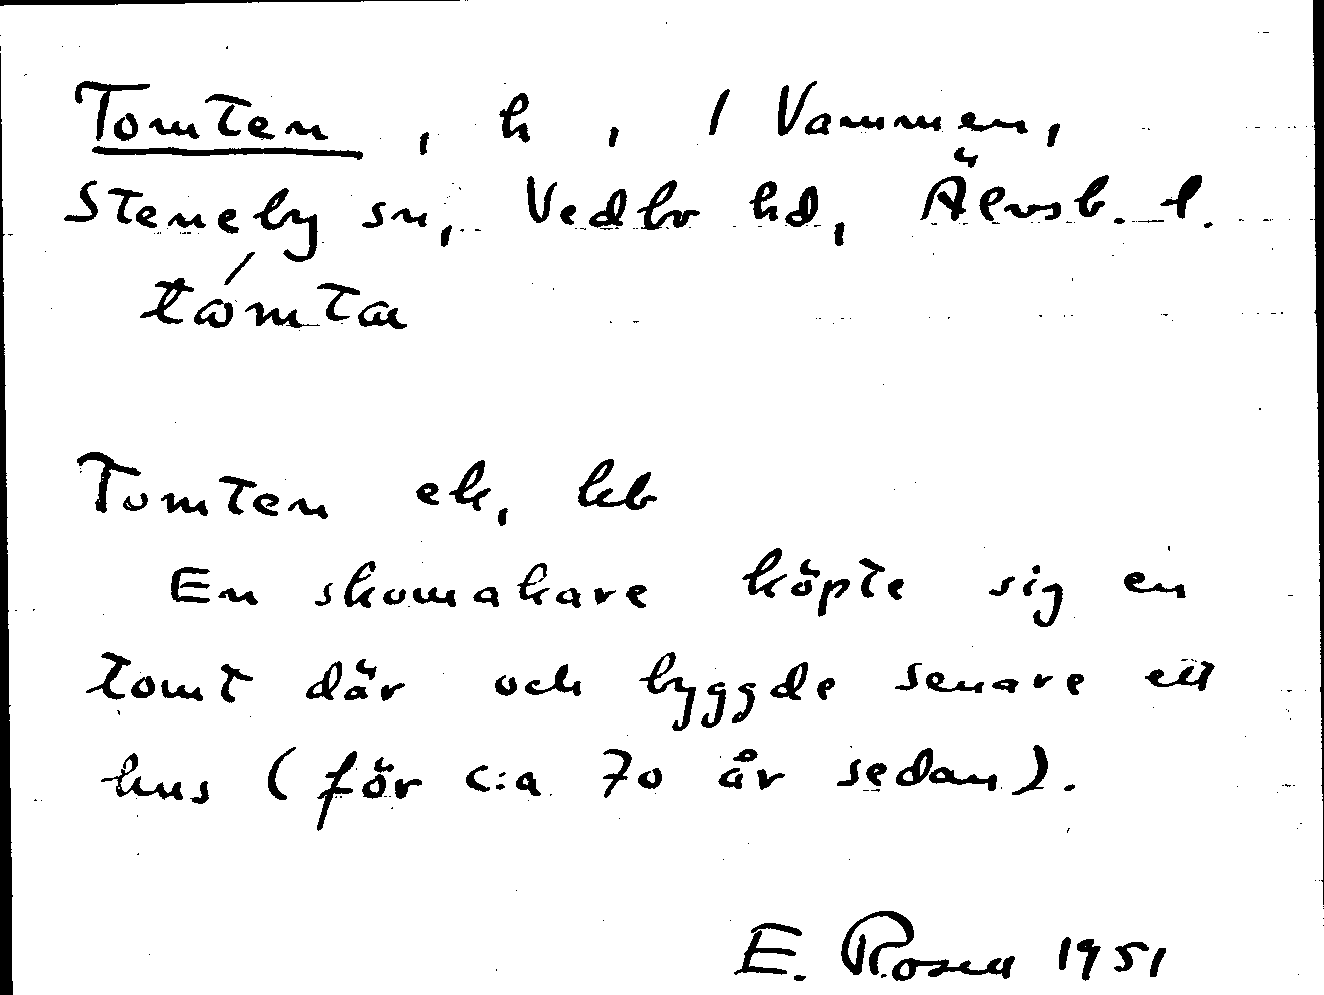 Tomten, h, 1 Vammen,
Steneby sn, Vedbo hd, Älvsb. l.
tómta
Tomten ek, kb
En skomakare köpte sig en
tomt där och byggde senare ett
hus (för c:a 70 år sedan).
E. Rosell 1951